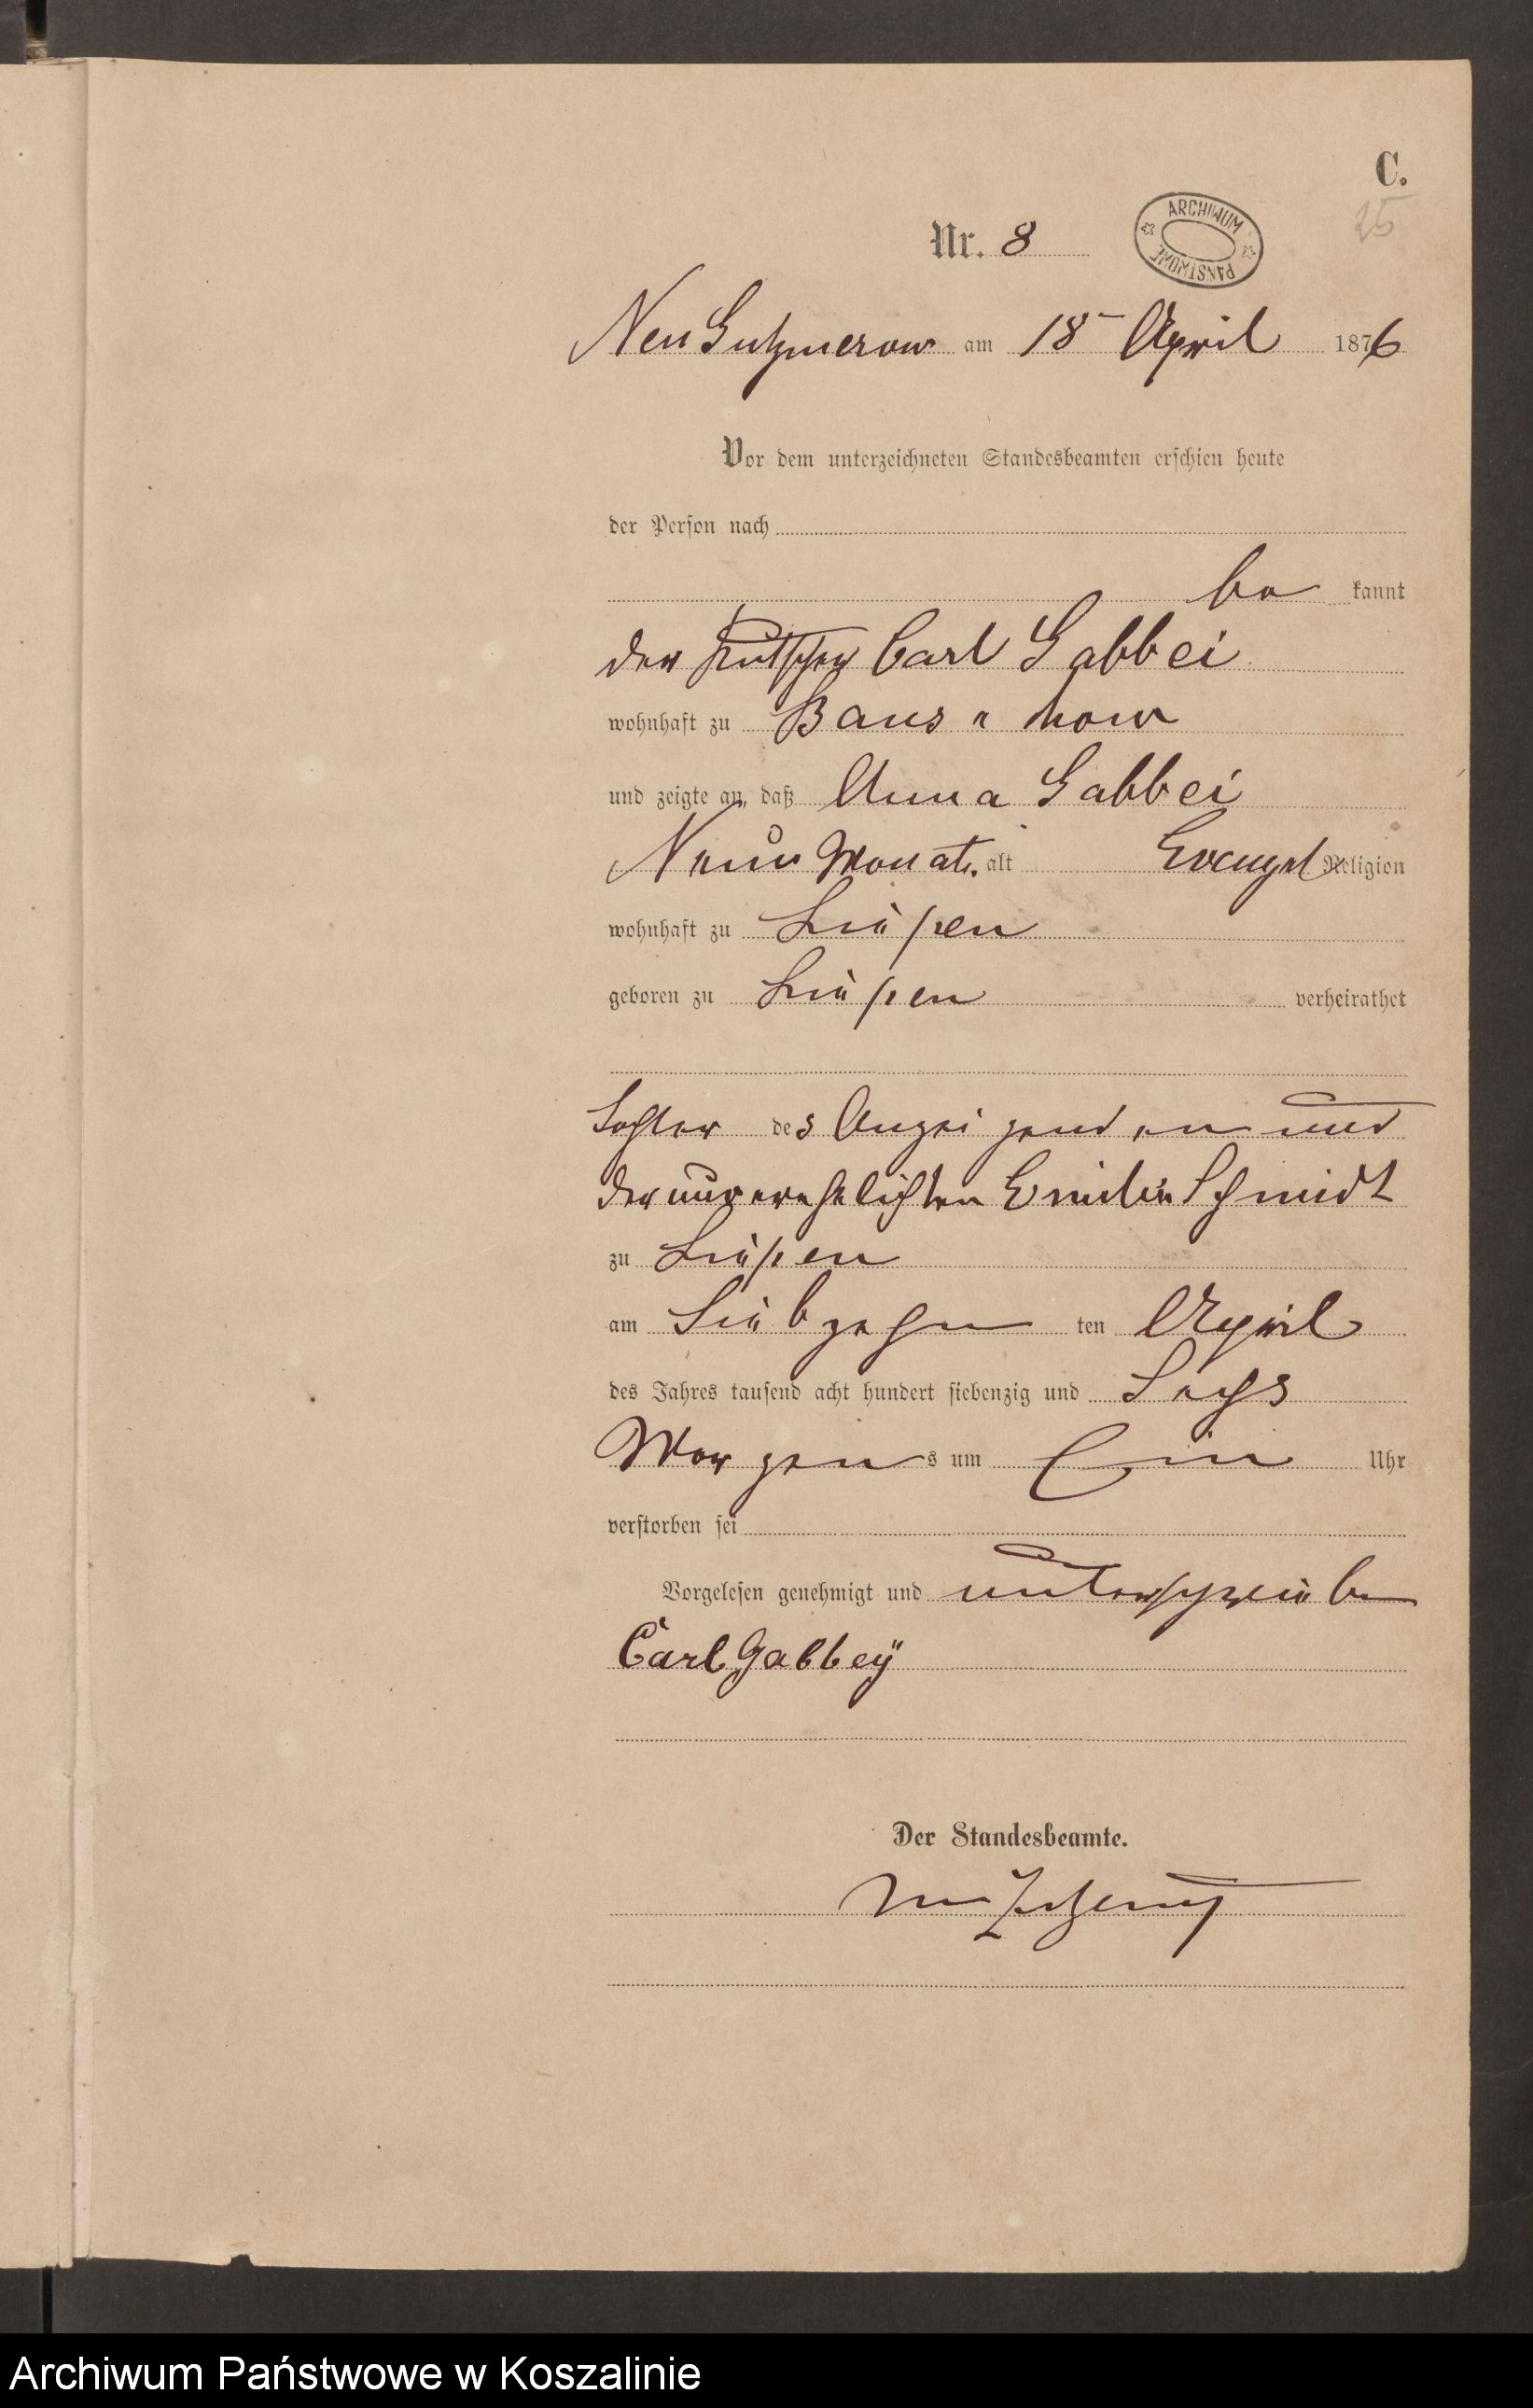 C.
25
Nr. 8
ARCHIWUM PAŃSTWOWE
Neu Gutzmerow am 18ten April 1876
Vor dem unterzeichneten Standesbeamten erschien heute
der Person nach
be kannt
der Kutscher Carl Gabbei
wohnhaft zu
und zeigte an, daß Anna Gabbei
Neun Monate alt Evangel Religion
wohnhaft zu Lüpen
geboren zu Lüpen verheirathet
Tochter des Anzeigenden und
der unverehelichten Emilie Schmidt
zu Lüpen
am Siebzehn ten April
des Jahres tausend acht hundert siebenzig und Sechs
Morgens um Ein Uhr
verstorben sei
Vorgelesen genehmigt und unterschrieben
Carl Gabbeÿ
Der Standesbeamte.
Archiwum Państwowe w Koszalinie